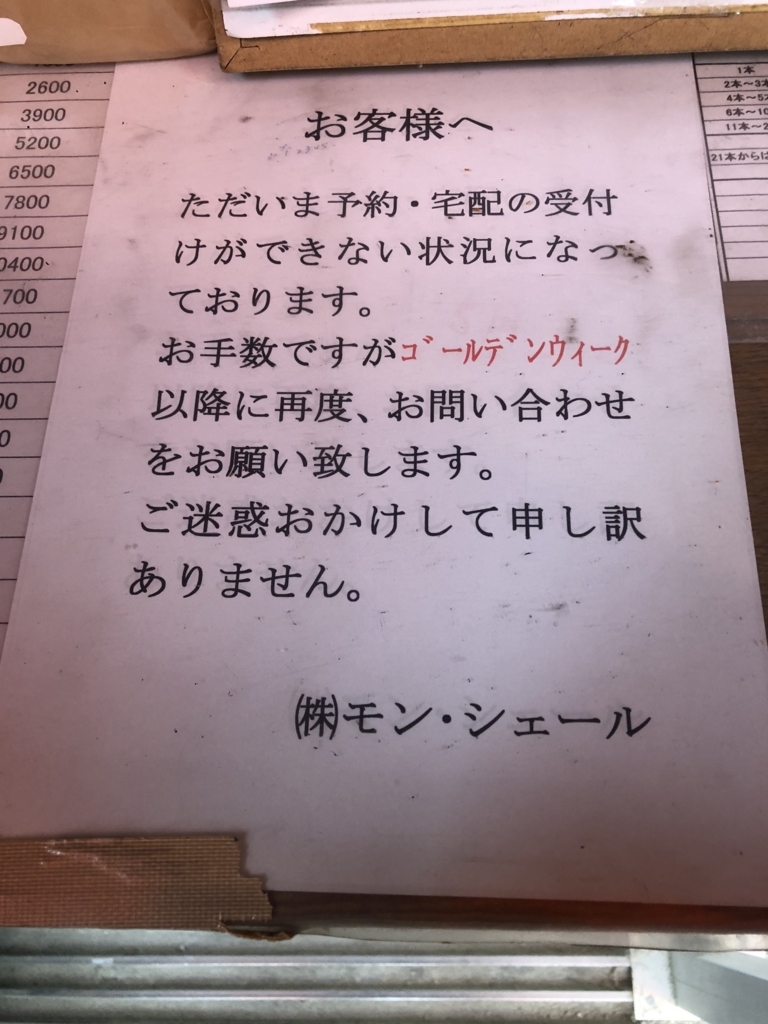 2600
3900
5200
6500
7800
9100
0400
700
000
00
00
0
お客様へ
ただいま予約・宅配の受付
けができない状況になっ
ております。
お手数ですがｺﾞｰﾙﾃﾞﾝｳｨｰｸ
以降に再度、お問い合わせ
をお願い致します。
ご迷惑おかけして申し訳
ありません。
㈱モン・シェール
1本
2本～3本
4本～5
6本～10
11本～2
21本からは